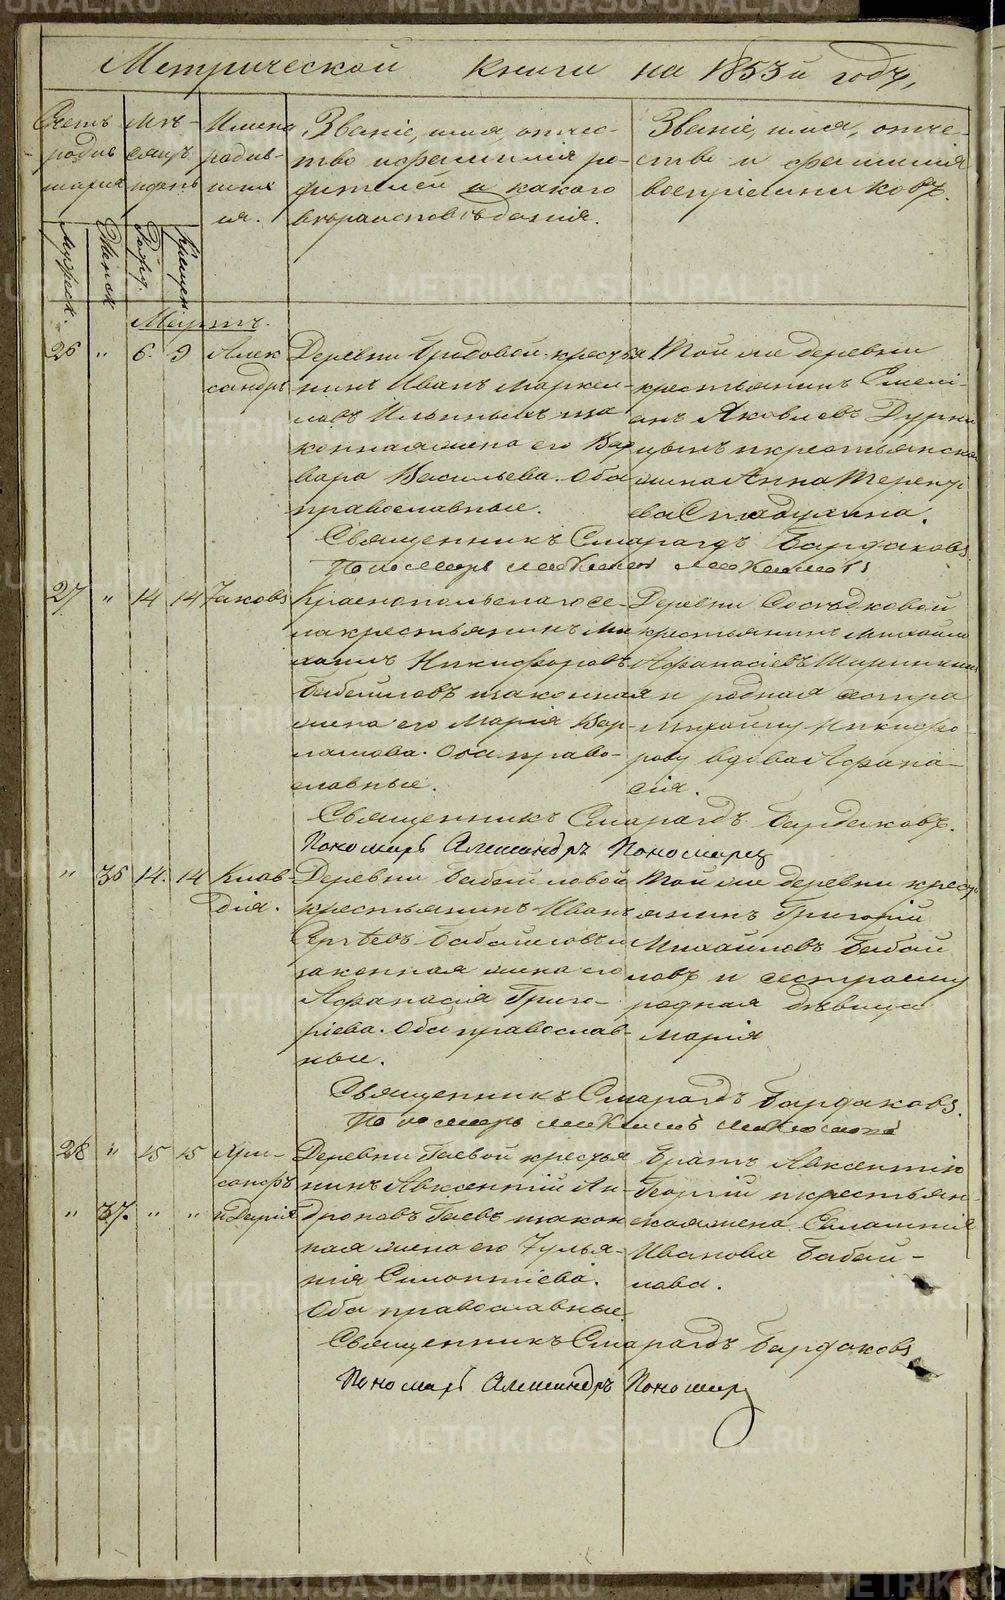 Метрической книги на 1853й годъ,
Счетъ родившихся
Мѣсяцъ и день
Имена родившихся.
Званіе, имя, отчество и фамилія родителей и какого вѣроисповѣданія.
Званіе, имя, отчество и фамилія воспріемниковъ.
Мужеск.
Женск.
Рожд.
Крещен.
Мартъ.
26 " 6. 9 Александръ
Деревни крестья
нинъ Иванъ Маркел
ловъ
конная жена его Вар
вара Васильева. Оба
православные.
Той же деревни
крестьянинъ Емелі
анъ Яковлевъ
и крестьянская
жена Анна Теренті
ева
Священникъ Смарагдъ Бардаковъ
27 " 14 14 Іаковъ
Краснопольскаго се-
ла крестьянинъ Ми
хаилъ Никифоровъ
Бабайловъ и законная
жена его Марія Вар-
ламова. Оба право-
славные.
Деревни Сосѣдковой
крестьянинъ Михаилъ
Афанасіевъ
и родная сестра
Михаилу Никифо-
рову вдова Афана-
сія.
Священникъ Смарагдъ Бардаковъ.
Пономарь Александръ Пономаревъ
" 36 14. 14 Клав-
дія.
Деревни Бабайловой
крестьянинъ Иванъ
Сергѣевъ Бабайловъ и
законная жена его
Афанасія Григо-
ріева. Оба православ-
ные.
Той же деревни кресть
янинъ Григорій
Михайловъ Бабай
ловъ и сестра ему
родная дѣвица
Марія
Священникъ Смарагдъ Бардаковъ.
28 " 15 15
" 37. " " и Дарія
Деревни Гаевой крестья
нинъ Авксентій Ан-
дроновъ Гаевъ и закон
ная жена его Іулья-
нія
Оба православные
Братъ Авксентію
Георгій и крестьян-
ская жена
Иванова Бабай-
лова.
Священникъ Смарагдъ Бардаковъ
Пономарь Александръ Пономаревъ
METRIKI.GASO-URAL.RU